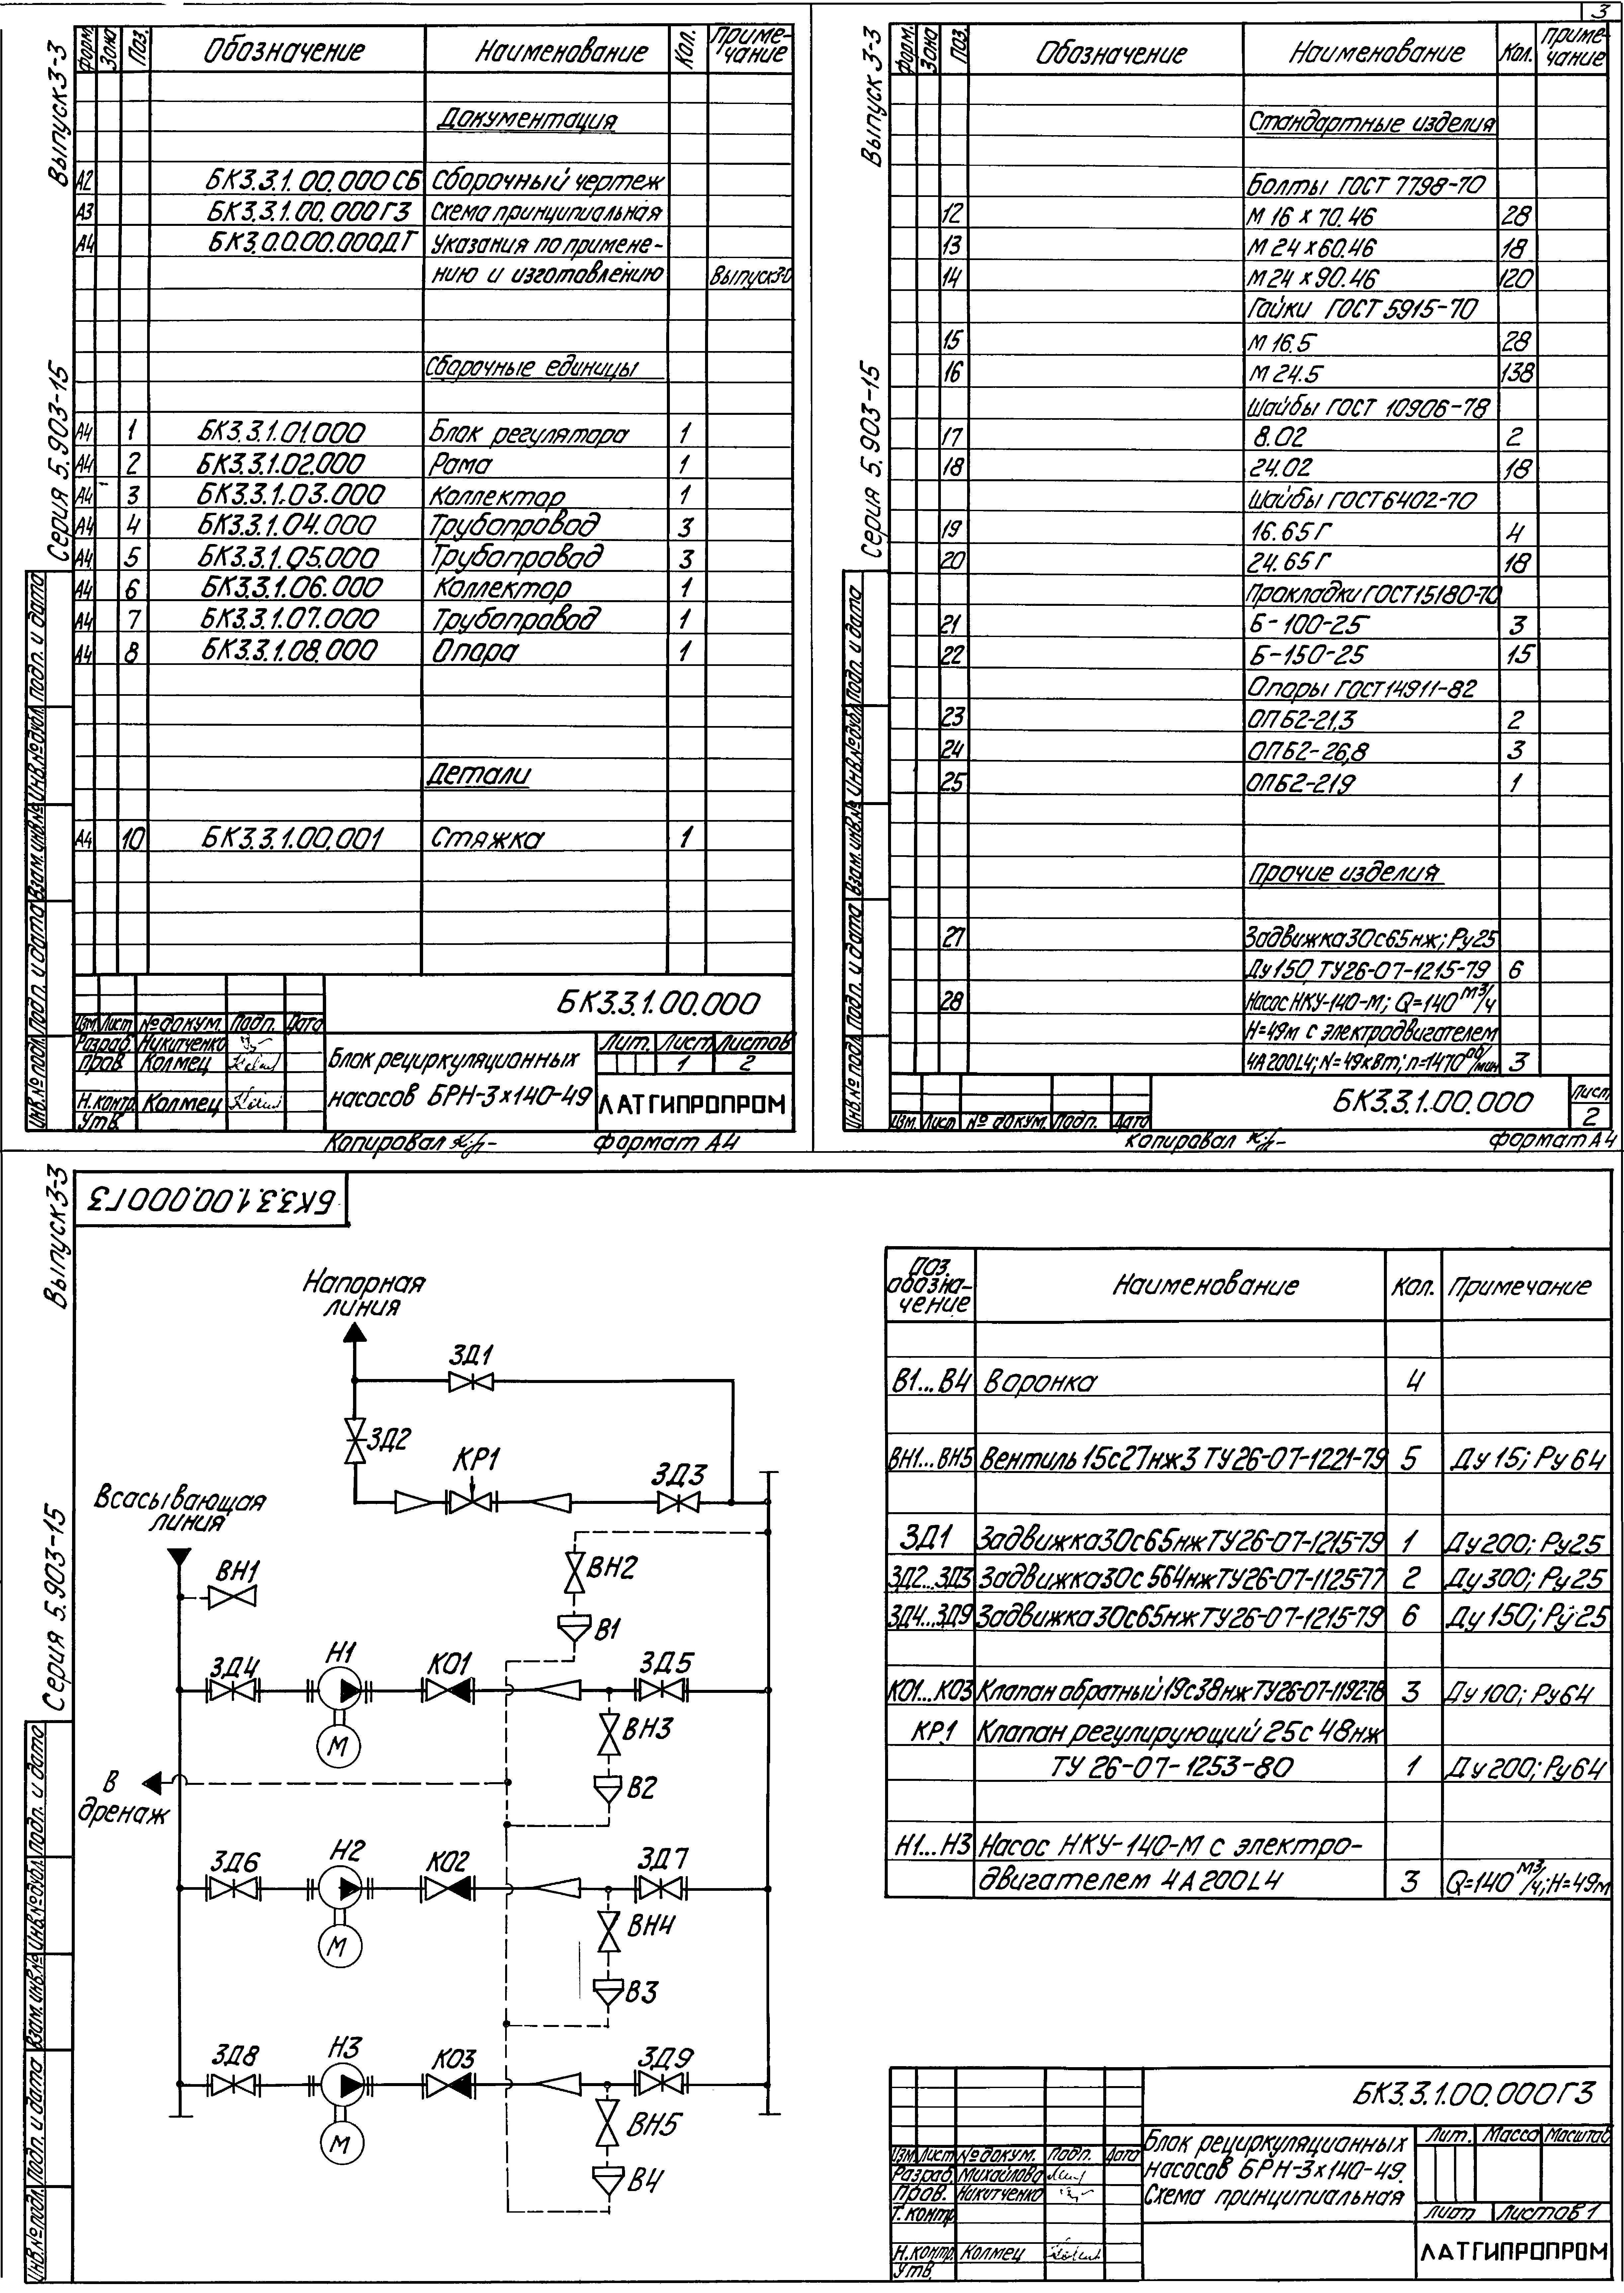 3
Выпуск 3-3
Серия 5.903-15
Форм. Зона Поз. Обозначение Наименование Кол. Примечание
Документация
А2 БК3.3.1.00.000СБ Сборочный чертеж
А3 БК3.3.1.00.000Г3 Схема принципиальная
А4 БК3.0.0.00.000ДТ Указания по примене-
нию и изготовлению Выпуск 3-0
Сборочные единицы
А4 1 БК3.3.1.01.000 Блок регулятора 1
А4 2 БК3.3.1.02.000 Рама 1
А4 3 БК3.3.1.03.000 Коллектор 1
А4 4 БК3.3.1.04.000 Трубопровод 3
А4 5 БК3.3.1.05.000 Трубопровод 3
А4 6 БК3.3.1.06.000 Коллектор 1
А4 7 БК3.3.1.07.000 Трубопровод 1
А4 8 БК3.3.1.08.000 Опора 1
Детали
А4 10 БК3.3.1.00.001 Стяжка 1
Инв.№ подл. Подп. и дата Взам.инв.№ Инв.№ дубл. Подп. и дата
БК3.3.1.00.000
Изм. Лист № докум. Подп. Дата
Разраб. Никитченко
Пров. Колмец
Н.контр. Колмец
Утв.
Блок рециркуляционных
насосов БРН-3×140-49
Лит. Лист Листов
1 2
ЛАТГИПРОПРОМ
Копировал Формат А4
Выпуск 3-3
Серия 5.903-15
Форм. Зона Поз. Обозначение Наименование Кол. Примечание
Стандартные изделия
Болты ГОСТ 7798-70
12 М 16 × 70.46 28
13 М 24 × 60.46 18
14 М 24 × 90.46 120
Гайки ГОСТ 5915-70
15 М 16.5 28
16 М 24.5 138
Шайбы ГОСТ 10906-78
17 8.02 2
18 24.02 18
Шайбы ГОСТ 6402-70
19 16.65Г 4
20 24.65Г 18
Прокладки ГОСТ 15180-70
21 Б-100-25 3
22 Б-150-25 15
Опоры ГОСТ 14911-82
23 ОПБ2-21,3 2
24 ОПБ2-26,8 3
25 ОПБ2-219 1
Прочие изделия
27 Задвижка 30с65нж; Ру25
Ду150 ТУ26-07-1215-79 6
28 Насос НКУ-140-М; Q=140 м3/ч
Н=49м с электродвигателем
4А200L4; N=49квт; n=1470 об/мин 3
Инв.№ подл. Подп. и дата Взам.инв.№ Инв.№ дубл. Подп. и дата
Изм. Лист № докум. Подп. Дата
БК3.3.1.00.000
Лист
2
Копировал Формат А4
Выпуск 3-3
Серия 5.903-15
БК3.3.1.00.000Г3
Напорная
линия
ЗД1
ЗД2
КР1
ЗД3
Всасывающая
линия
ВН1
ВН2
В1
ЗД4 Н1 КО1 ЗД5
М
ВН3
В2
В
дренаж
ЗД6 Н2 КО2 ЗД7
М
ВН4
В3
ЗД8 Н3 КО3 ЗД9
М
ВН5
В4
Поз. обозна-чение Наименование Кол. Примечание
В1...В4 Воронка 4
ВН1...ВН5 Вентиль 15с27нж3 ТУ26-07-1221-79 5 Ду15; Ру64
ЗД1 Задвижка 30с65нж ТУ26-07-1215-79 1 Ду200; Ру25
ЗД2...ЗД3 Задвижка 30с564нж ТУ26-07-1125-77 2 Ду300; Ру25
ЗД4...ЗД9 Задвижка 30с65нж ТУ26-07-1215-79 6 Ду150; Ру25
КО1...КО3 Клапан обратный 19с38нж ТУ26-07-1192-78 3 Ду100; Ру64
КР1 Клапан регулирующий 25с48нж
ТУ 26-07-1253-80 1 Ду200; Ру64
Н1...Н3 Насос НКУ-140-М с электро-
двигателем 4А200L4 3 Q=140 м3/ч; Н=49м
Инв.№ подл. Подп. и дата Взам.инв.№ Инв.№ дубл. Подп. и дата
БК3.3.1.00.000Г3
Изм. Лист № докум. Подп. Дата
Разраб. Михайлова
Пров. Никитченко
Т. контр.
Н.контр. Колмец
Утв.
Блок рециркуляционных
насосов БРН-3×140-49.
Схема принципиальная
Лит. Масса Масштаб
Лист Листов 1
ЛАТГИПРОПРОМ